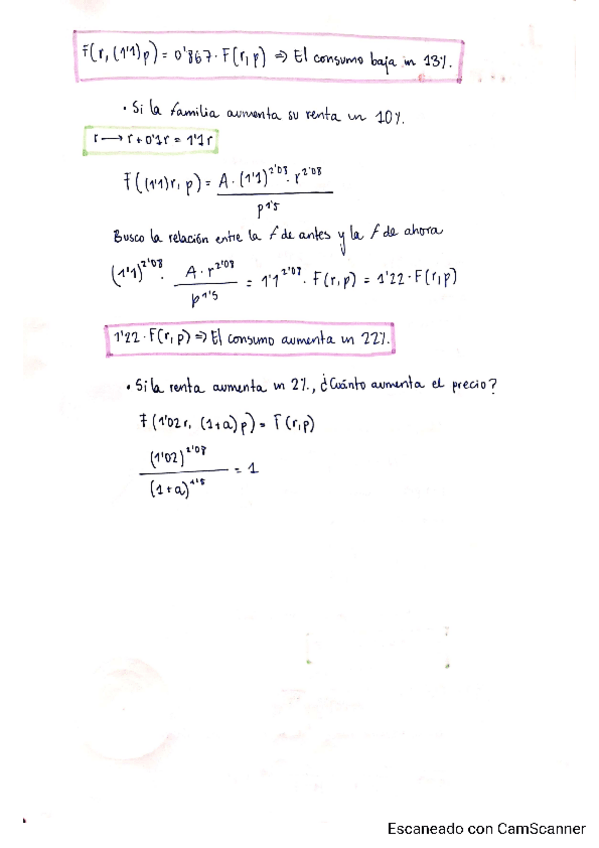 F(r, (1'1)p) = 0'867 · F(r,p) ⇒ El consumo baja un 13%.
• Si la familia aumenta su renta un 10%.
r → r + 0'1r = 1'1r
F((1'1)r, p) = A · (1'1)^2'08 · r^2'08 / p^1'5
Busco la relación entre la f de antes y la f de ahora
(1'1)^2'08 · A · r^2'08 / p^1'5 = 1'1^2'08 · F(r,p) = 1'22 · F(r,p)
1'22 · F(r,p) ⇒ El consumo aumenta un 22%.
• Si la renta aumenta un 2%, ¿Cuánto aumenta el precio?
F(1'02r, (1+a)p) = F(r,p)
(1'02)^2'08 / (1+a)^1'5 = 1
Escaneado con CamScanner